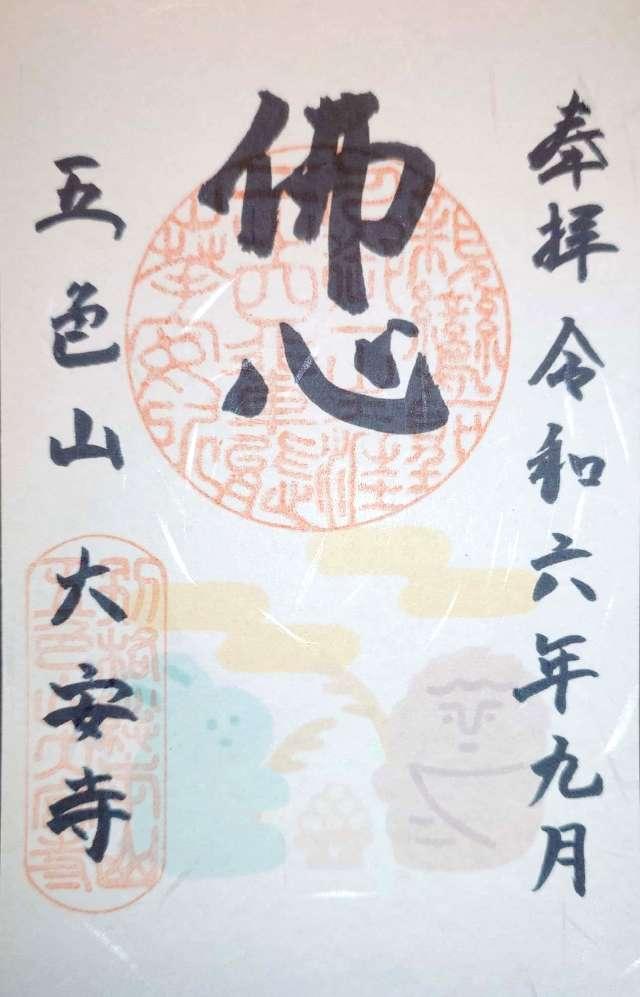 奉拝 令和六年九月
佛心
五色山 大安寺